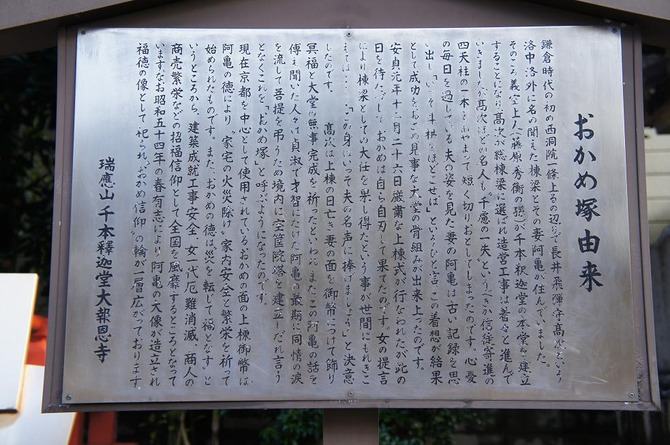 おかめ塚由来
鎌倉時代の初め西洞院一條上るの辺りで長井飛弾守高次という
洛中洛外に名の聞えた棟梁とその妻阿亀が住んでいました。
そのころ義空上人(藤原秀衡の孫)が千本釈迦堂の本堂を建立
することになり高次が総棟梁に選ばれ造営工事は着々と進んで
いきましたが高次ほどの名人も千慮の一失というべきか信徒寄進の
四天柱の一本をあやまって短かく切りおとしてしまったのです。心憂
の毎日を過している夫の姿を見た妻の阿亀は古い記録を思
い出し「いっそ斗栱をほどこせば」というひと言、この着想が結果
として成功をおさめ見事な大堂の骨組みが出来上ったのです。
安貞元年十二月二十六日厳粛な上棟式が行なわれたが此の
日を待たずして、おかめは自ら自刃して果てたのです。女の提言
により棟梁としての大任を果し得たという事が世間にもれきこ
えては…「この身はいっそ夫の名声に捧げましょう」と決意
したのです。 高次は上棟の日亡き妻の面を御幣につけて飾り
冥福と大堂の無事完成を祈ったといわれ、またこの阿亀の話を
傳え聞いた人々は貞淑で才智にたけた阿亀の最期に同情の涙
を流して菩提を弔うため境内に宝篋院塔を建立しだれ言う
となくこれを「おかめ塚」と呼ぶようになったのです。
現在京都を中心として使用されているおかめの面の上棟御幣は
阿亀の徳により、家宅の火災除け、家内安全と繁栄を祈って
始められたものです。また、おかめの徳は「災を転じて福となす」と
いうところから、建築成就工事安全、女一代厄難消滅、商人の
商売繁栄などの招福信仰として全国を風靡するところとなって
います。なお昭和五十四年の春有志により阿亀の大像が造立され
福徳の像として祀られ、おかめ信仰の輪が一層広がっております。
瑞應山 千本釋迦堂大報恩寺